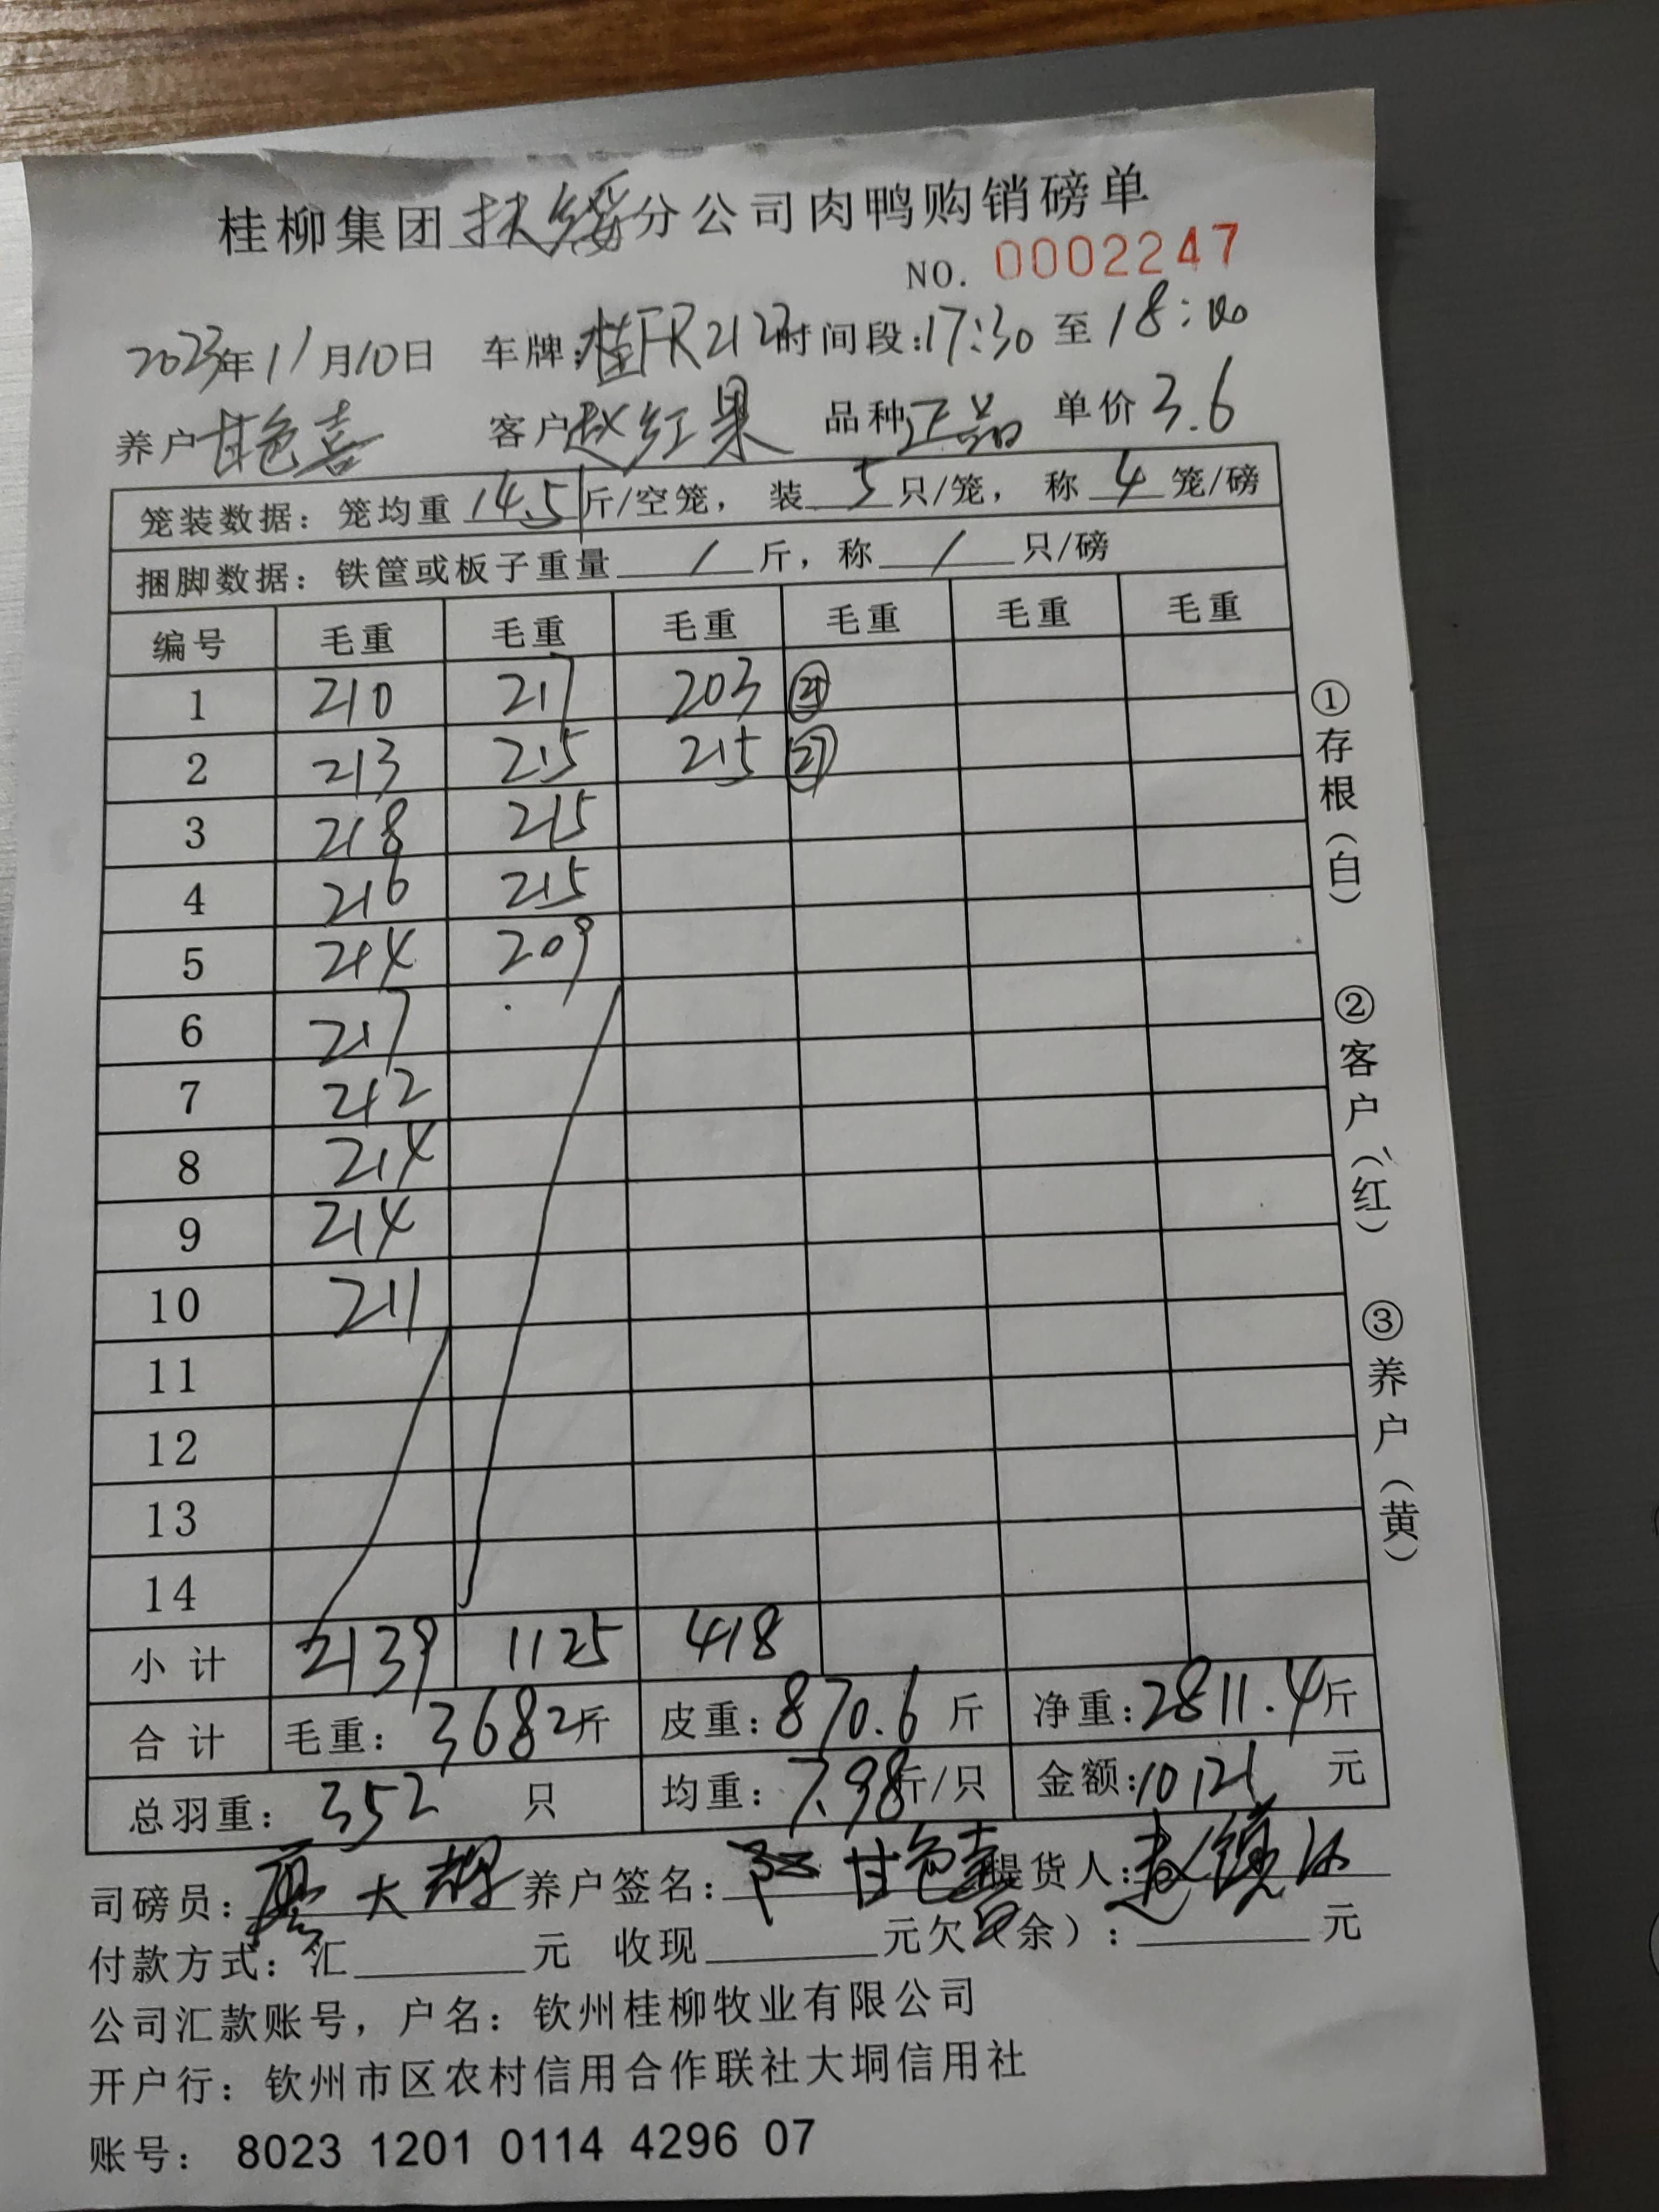 桂柳集团扶绥分公司肉鸭购销磅单
NO. 0002247
2023年11月10日 车牌:桂FR2122时间段:17:30至18:00
养户甘色喜 客户赵红果 品种正品 单价3.6
笼装数据:笼均重14.51斤/空笼,装5只/笼,称4笼/磅
捆脚数据:铁筐或板子重量/斤,称/只/磅
编号 毛重 毛重 毛重 毛重 毛重 毛重
1 210 217 203 ㉑
2 213 215 215
3 218 215
4 216 215
5 214 209
6 217
7 212
8 214
9 214
10 211
11
12
13
14
小计 2139 1125 418
合计 毛重:3682斤 皮重:870.6斤 净重:2811.4斤
总羽重:352只 均重:7.98斤/只 金额:10121元
司磅员:廖大 养户签名:甘色喜 提货人:赵
付款方式:汇____元 收现____元欠(余):____元
公司汇款账号,户名:钦州桂柳牧业有限公司
开户行:钦州市区农村信用合作联社大垌信用社
账号:8023 1201 0114 4296 07
①存根(白)
②客户(红)
③养户(黄)